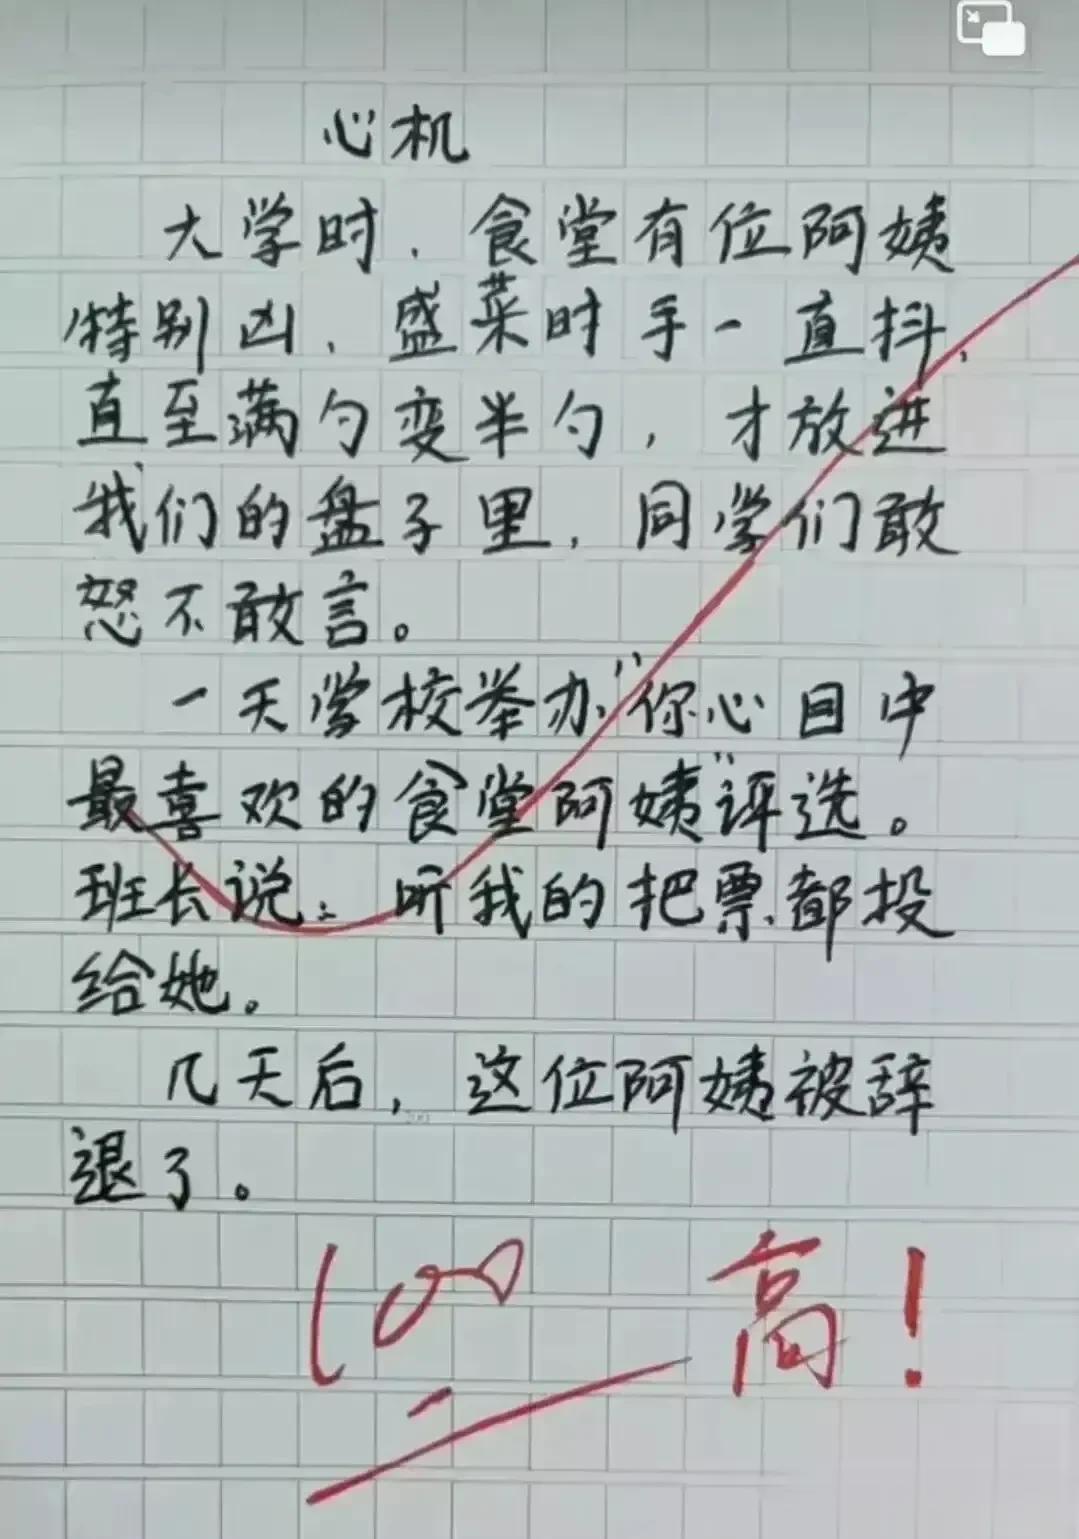 心机
大学时，食堂有位阿姨
特别凶，盛菜时手一直抖，
直至满勺变半勺，才放进
我们的盘子里，同学们敢
怒不敢言。
一天学校举办“你心目中
最喜欢的食堂阿姨”评选。
班长说：听我的把票都投
给她。
几天后，这位阿姨被辞
退了。
100 高！